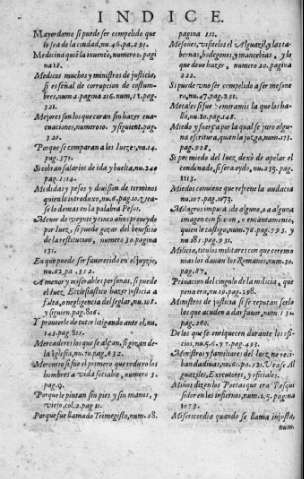 INDICE.
Mayordomo si puede ser compelido que
lo sea de la ciudad, nu. 46. pa. 235.
Medicina quiẽ la inuentò, numero. pagi
na 28.
Medicos muchos y ministros de justicia,
si es señal de corrupcion de costum-
bres, num. 2. pagina 216. num. 13. pag.
321.
Mejores son los que curan sin hazer eua-
cuaciones, numero 10. y siguent, pag.
321.
Porque se comparan a los Iuezes, nu. 14.
pag. 271.
Si cobran salarios de ida y buelta, nu. 240
pag. 1124.
Medidas y pesos y diuision de terminos
quien lo introduxo, nu. 6. pag. 10. y vea-
se lo demas en la palabra Pesos.
Menor de veynte y cinco años proueydo
por Iuez, si puede gozar del beneficio
de la restitucion, numero 30. pagina
131.
En que puede ser fauorecido en el juyzio,
nu. 62. pa. 312.
A menor y miserables personas, si puede
el Iuez Ecclesiastico hazer justicia a
falta, o negligencia del seglar, nu. 108.
y siguien, pag. 816.
Y proueerle de tutor litigando ante el, nu.
142. pag. 821.
Mercaderes los que se alçan, si gozan de
la Iglesia, nu. 70. pag. 632.
Mercurio si fue el primero que reduxo los
hombres a vida sociable, numero 3.
pag. 9.
Porque le pintan sin pies y sin manos, y
viejo, col. 2. pag. 11.
Porque fue llamado Trimegisto, num. 28.
pagina 112.
Mesones, visitelos el Alguazil, y las ta-
bernas, bodegones, y mancebias, y lo
que deue hazer, numero 20. pagina
222.
Si puede vno ser compelido a ser mesone
ro, nu. 51. pag. 238.
Metales si fue
pag. 248.
Miedo y fuerça por la qual se juro algu-
na escritura, quien la juzga, num. 173.
pag. 828.
Si por miedo del Iuez dexò de apelar el
condenado, si sera oydo, nu. 233. pag.
1113.
Miedos conuiene que refrene la audacia
nu. 107. pag. 1073.
Milagros
imagen
quien lo castiga, num. 78. pag. 795. y
nu. 181. pag. 931.
Milicia, con los militares con que ceremo
nias los dauan los Romanos, num. 20.
pag. 87.
Priuacion del cingulo de la milicia, que
pena era, nu. 19. pag. 298.
Ministros de justicia si se reputan serlo
los que acuden a dar fauor, num. 15.
pag. 260.
De los que se enriquecen durante los ofi-
cios, nu. 56. y 57. pag. 493.
Ministros y familiares del Iuez no reci-
ban dadiuas, nu. 61. pa. 521. Vease Al
guaziles, Executores, y oficiales.
si
sidir en los infiernos, num. 15. pagina
1073.
Misericordia quando se llama injusta,
num.